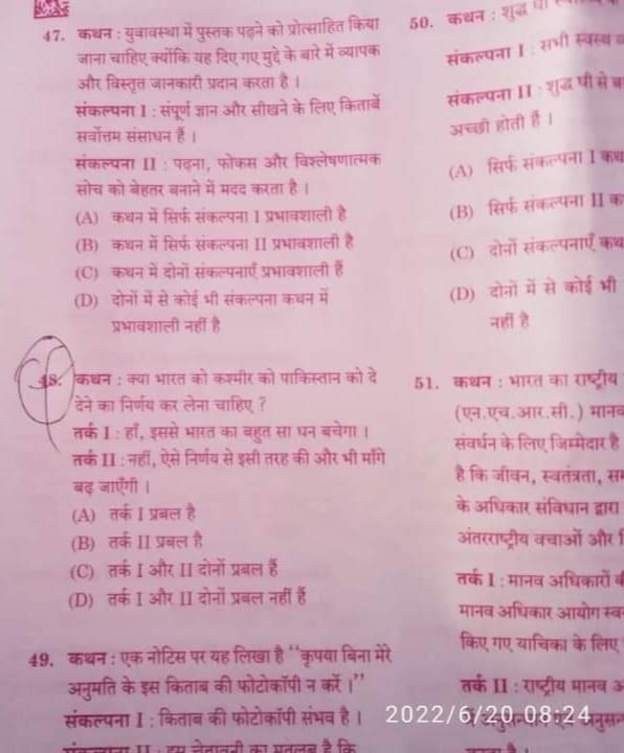 47. कथन : युवावस्था में पुस्तक पढ़ने को प्रोत्साहित किया
जाना चाहिए क्योंकि यह दिए गए मुद्दे के बारे में व्यापक
और विस्तृत जानकारी प्रदान करता है ।
संकल्पना I : संपूर्ण ज्ञान और सीखने के लिए किताबें
सर्वोत्तम संसाधन हैं ।
संकल्पना II : पढ़ना, फोकस और विश्लेषणात्मक
सोच को बेहतर बनाने में मदद करता है ।
(A) कथन में सिर्फ संकल्पना I प्रभावशाली है
(B) कथन में सिर्फ संकल्पना II प्रभावशाली है
(C) कथन में दोनों संकल्पनाएँ प्रभावशाली हैं
(D) दोनों में से कोई भी संकल्पना कथन में
प्रभावशाली नहीं है
48. कथन : क्या भारत को कश्मीर को पाकिस्तान को दे
देने का निर्णय कर लेना चाहिए ?
तर्क I : हाँ, इससे भारत का बहुत सा धन बचेगा ।
तर्क II : नहीं, ऐसे निर्णय से इसी तरह की और भी माँगे
बढ़ जाएँगी ।
(A) तर्क I प्रबल है
(B) तर्क II प्रबल है
(C) तर्क I और II दोनों प्रबल हैं
(D) तर्क I और II दोनों प्रबल नहीं हैं
49. कथन : एक नोटिस पर यह लिखा है “कृपया बिना मेरे
अनुमति के इस किताब की फोटोकॉपी न करें ।”
संकल्पना I : किताब की फोटोकॉपी संभव है ।
संकल्पना II : इस चेतावनी का मतलब है कि
50. कथन : शुद्ध
संकल्पना I : सभी स्वस्थ
संकल्पना II : शुद्ध घी से
अच्छी होती हैं ।
(A) सिर्फ संकल्पना I
(B) सिर्फ संकल्पना II
(C) दोनों संकल्पनाएँ
(D) दोनों में से कोई भी
नहीं है
51. कथन : भारत का राष्ट्रीय
(एन.एच.आर.सी.) मानव
संवर्धन के लिए जिम्मेदार है
है कि जीवन, स्वतंत्रता,
के अधिकार संविधान द्वारा
अंतरराष्ट्रीय वचाओं और
तर्क I : मानव अधिकारों
मानव अधिकार आयोग
किए गए याचिका के लिए
तर्क II : राष्ट्रीय मानव
2022/6/20 08:24